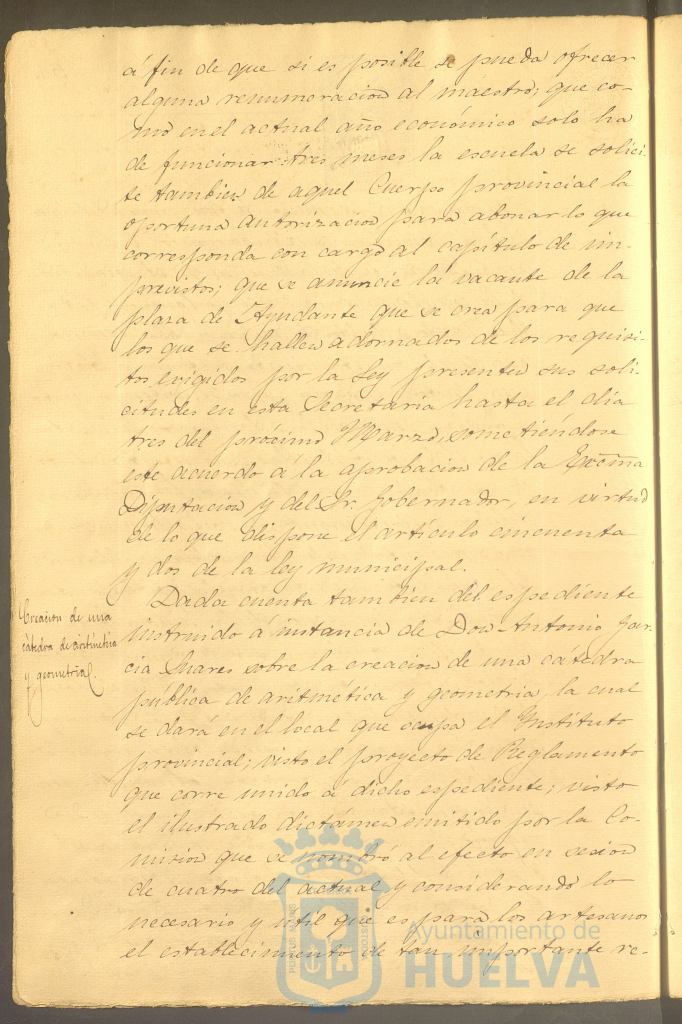 á fin de que si es posible se pueda ofrecer
alguna renumeracion al maestro; que co-
mo en el actual año económico solo ha
de funcionar tres meses la escuela se solici-
te tambien de aquel Cuerpo provincial la
oportuna autorizacion para abonar lo que
corresponda con cargo al capítulo de im-
previstos; que se anuncie la vacante de la
plaza de Ayudante que se crea para que
los que se hallen adornados de los requisi-
tos exigidos por la Ley presenten sus soli-
citudes en esta Secretaria hasta el dia
tres del próximo Marzo, sometiéndose
este acuerdo á la aprobacion de la Excma
Diputacion y del Sr. Gobernador, en virtud
de lo que dispone el artículo cincuenta
y dos de la ley municipal.
Creacion de una
cátedra de aritmética
y geometria.
Dada cuenta tambien del espediente
instruido á instancia de Don Antonio Gar-
cia Suares sobre la creacion de una catedra
pública de aritmética y geometria, la cual
se dará en el local que ocupa el Instituto
provincial; visto el proyecto de Reglamento
que corre unido a dicho espediente; visto
el ilustrado dictámen emitido por la Co-
mision que se nombró al efecto en sesion
de cuatro del actual y considerando lo
necesario y útil que es para los artesanos
el establecimiento de tan importante re-
Ayuntamiento de
HUELVA